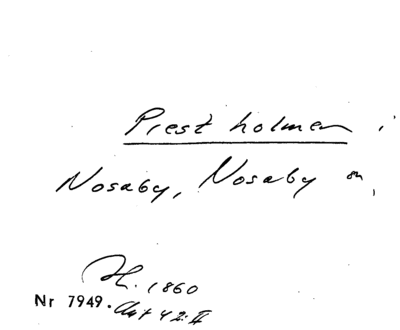 Prestholmen i
Nosaby, Nosaby sn,
1860
Nr 7949. Akt 42:II